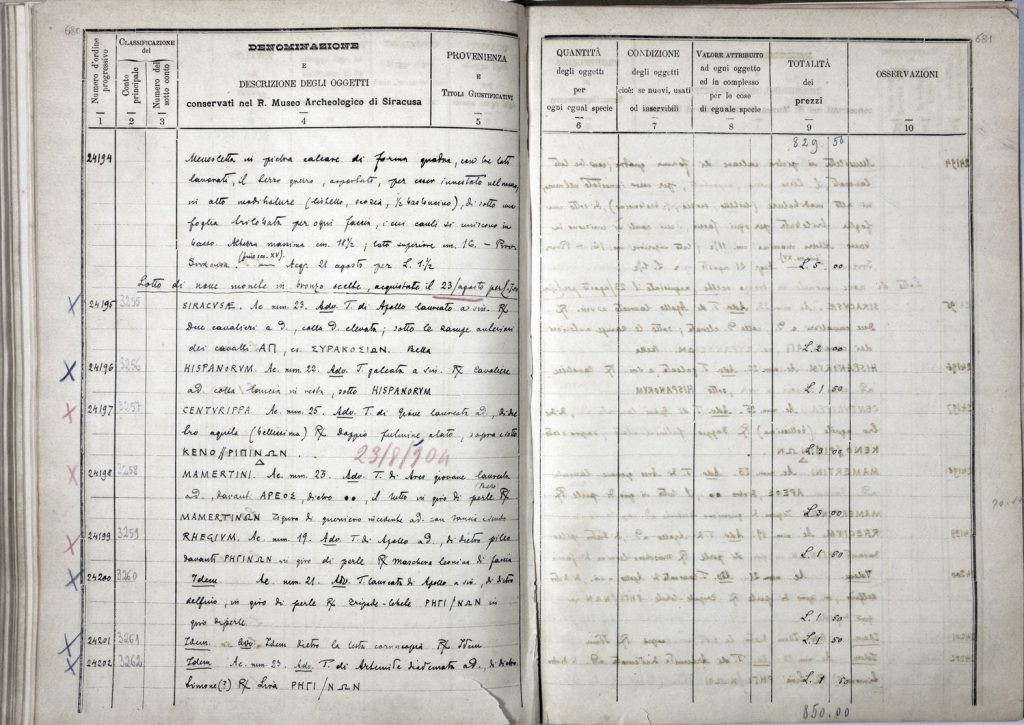 680
Numero d'ordine progressivo
CLASSIFICAZIONE del
Conto principale
Numero del sotto conto
DENOMINAZIONE
E
DESCRIZIONE DEGLI OGGETTI
conservati nel R. Museo Archeologico di Siracusa
PROVENIENZA
E
TITOLI GIUSTIFICATIVI
1 2 3 4 5
24194 Mensoletta in pietra calcare di forma quadra, con tre lati
lavorati, il terzo grezzo, asportato, per esser innestato nel muro,
in alto modinature (listello, scozia, ½ bastoncino), di sotto una
foglia trilobata per ogni faccia, i cui cauli si uniscono in
basso. Altezza massima cm. 18½; lato superiore cm. 16. – Prov.
Siracusa. (fine sec. XV). Acq. 21 agosto per L. 1½
Lotto di nove monete in bronzo scelte, acquistato il 23/agosto per L.
24195 3255 SIRACUSÆ. Ae. mm. 23. Adv. T. di Apollo laureato a sin. R/
Due cavalieri a d., colla d. elevata; sotto le zampe anteriori
dei cavalli ΑΠ, es. ΣΥΡΑΚΟΣΙΩΝ. Bella
24196 3256 HISPANORVM. Ae. mm. 22. Adv. T. galeata a sin. R/ Cavaliere
ad. colla lancia in resta, sotto HISPANORVM
24197 3257 CENTVRIPPA. Ae. mm. 25. Adv. T. di Giove laureata ad., di die-
tro aquila (bellissima) R/ Doppio fulmine alato, sopra e sotto
ΚΕΝΟ // ΡΙΠΙΝΩΝ
23/8/904
24198 3258 MAMERTINI. Ae. mm. 23. Adv. T. di Ares giovane laureata
ad. davanti ΑΡΕΟΣ, dietro ••, il tutto in giro di perle R/ Bella
ΜΑΜΕΡΤΙΝΩΝ figura di guerriero incedente ad. con lancia e scudo
24199 3259 RHEGIVM. Ae. mm. 19. Adv. T. di Apollo a d., di dietro pileo
davanti ΡΗΓΙΝΩΝ in giro di perle R/ maschera leonina di faccia
24200 3260 Idem Ae. mm. 21. Adv. T. laureata di Apollo a sin., di dietro
delfino, in giro di perle R/ tripode-lebete ΡΗΓΙ/ΝΩΝ in
giro di perle
24201 3261 Idem. Adv. Idem dietro la testa cornucopia R/ Idem
24202 3262 Idem. Ae. mm. 23. Adv. T. di Artemide diademata ad., di dietro
timone(?) R/ Lira ΡΗΓΙ/ΝΩΝ
681
QUANTITÀ
degli oggetti
per
ogni egual specie
CONDIZIONE
degli oggetti
cioè: se nuovi, usati
od inservibili
VALORE ATTRIBUITO
ad ogni oggetto
ed in complesso
per le cose
di eguale specie
TOTALITÀ
dei
prezzi
OSSERVAZIONI
6 7 8 9 10
829 50
L. 5 00
L. 2 00
L. 1 50
L. 3 00
L. 3 00
L. 1 50
L. 1 50
L. 1 50
L. 1 50
850.00